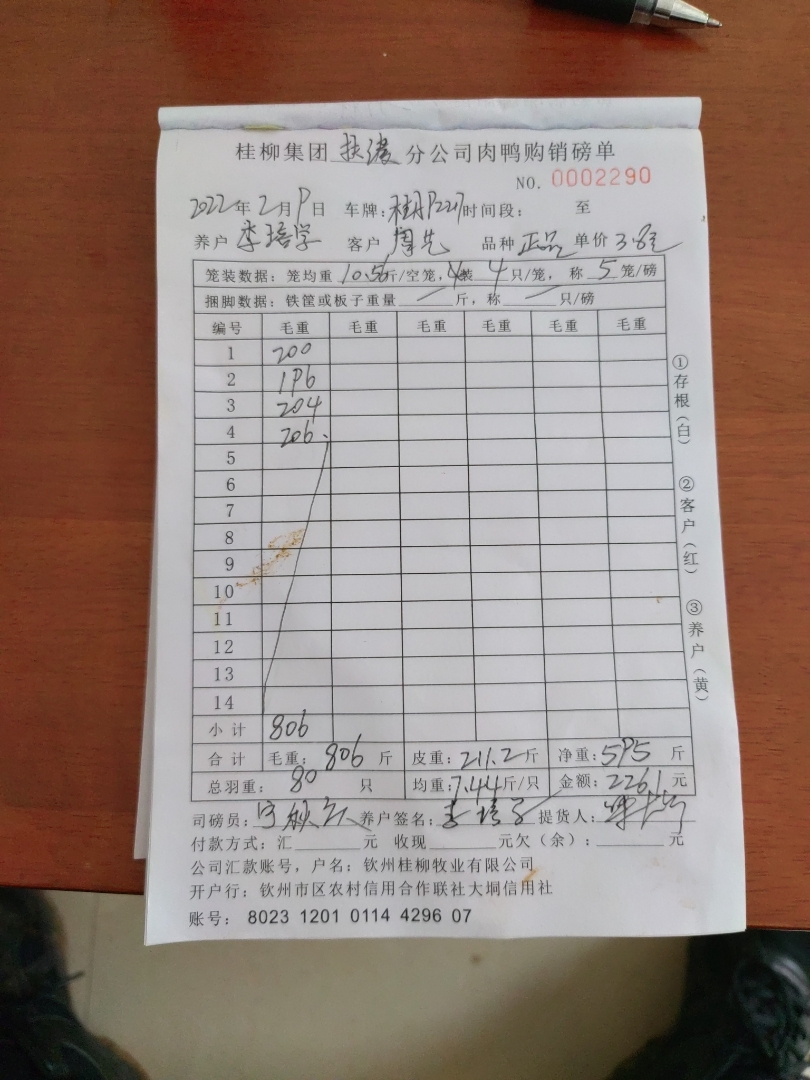 桂柳集团 扶绥 分公司肉鸭购销磅单
NO. 0002290
2022年2月9日 车牌: 时间段: 至
养户 李培学 客户 周先 品种 正品 单价 3.8元
笼装数据: 笼均重 10.56斤/空笼, 装 4 只/笼, 称 5 笼/磅
捆脚数据: 铁筐或板子重量 一 斤, 称 一 只/磅
编号 毛重 毛重 毛重 毛重 毛重
1 200
2 196
3 204
4 206
5
6
7
8
9
10
11
12
13
14
小计 806
合计 毛重: 806 斤 皮重: 211.2斤 净重: 595 斤
总羽重: 80 只 均重: 7.44斤/只 金额: 2261元
司磅员: 养户签名: 李培学 提货人:
付款方式: 汇 元 收现 元欠(余): 元
公司汇款账号, 户名: 钦州桂柳牧业有限公司
开户行: 钦州市区农村信用合作联社大垌信用社
账号: 8023 1201 0114 4296 07
①存根(白)
②客户(红)
③养户(黄)